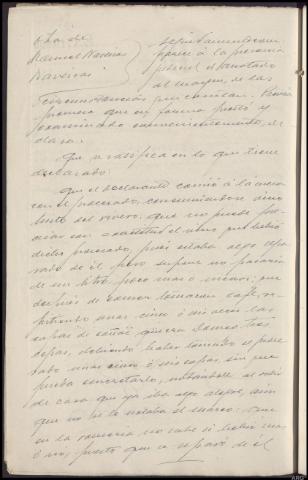 Otra de
Manuel
Seguidamente com
parece á la presencia
judicial el anotado
al margen, de las
circunstancias que constan. Previa
promesa que en forma prestó y
examinado convenientemente, de
clara:
Que se ratifica en lo que tiene
declarado:
Que el declarante comió á la mesa
con el procesado, consumiéndose vino
tinto del mismo, que no puede pre
cisar con exactitud el vino que bebió
dicho procesado, pues estaba algo sepa
rado de él pero supone no pasaría
de un litro poco más ó menos; que
después de comer tomaron café, re
partiendo unas cinco ó seis veces las
copas de coñac que era
copas, debiendo haber tomado el proce
sado unas cinco ó seis copas, sin que
pueda concretarlo, notándole al salir
de casa que iba algo alegre, aun
que no se le notaba el mareo: Que
en la romería no sabe si bebió más
ó no, puesto que se separó de él